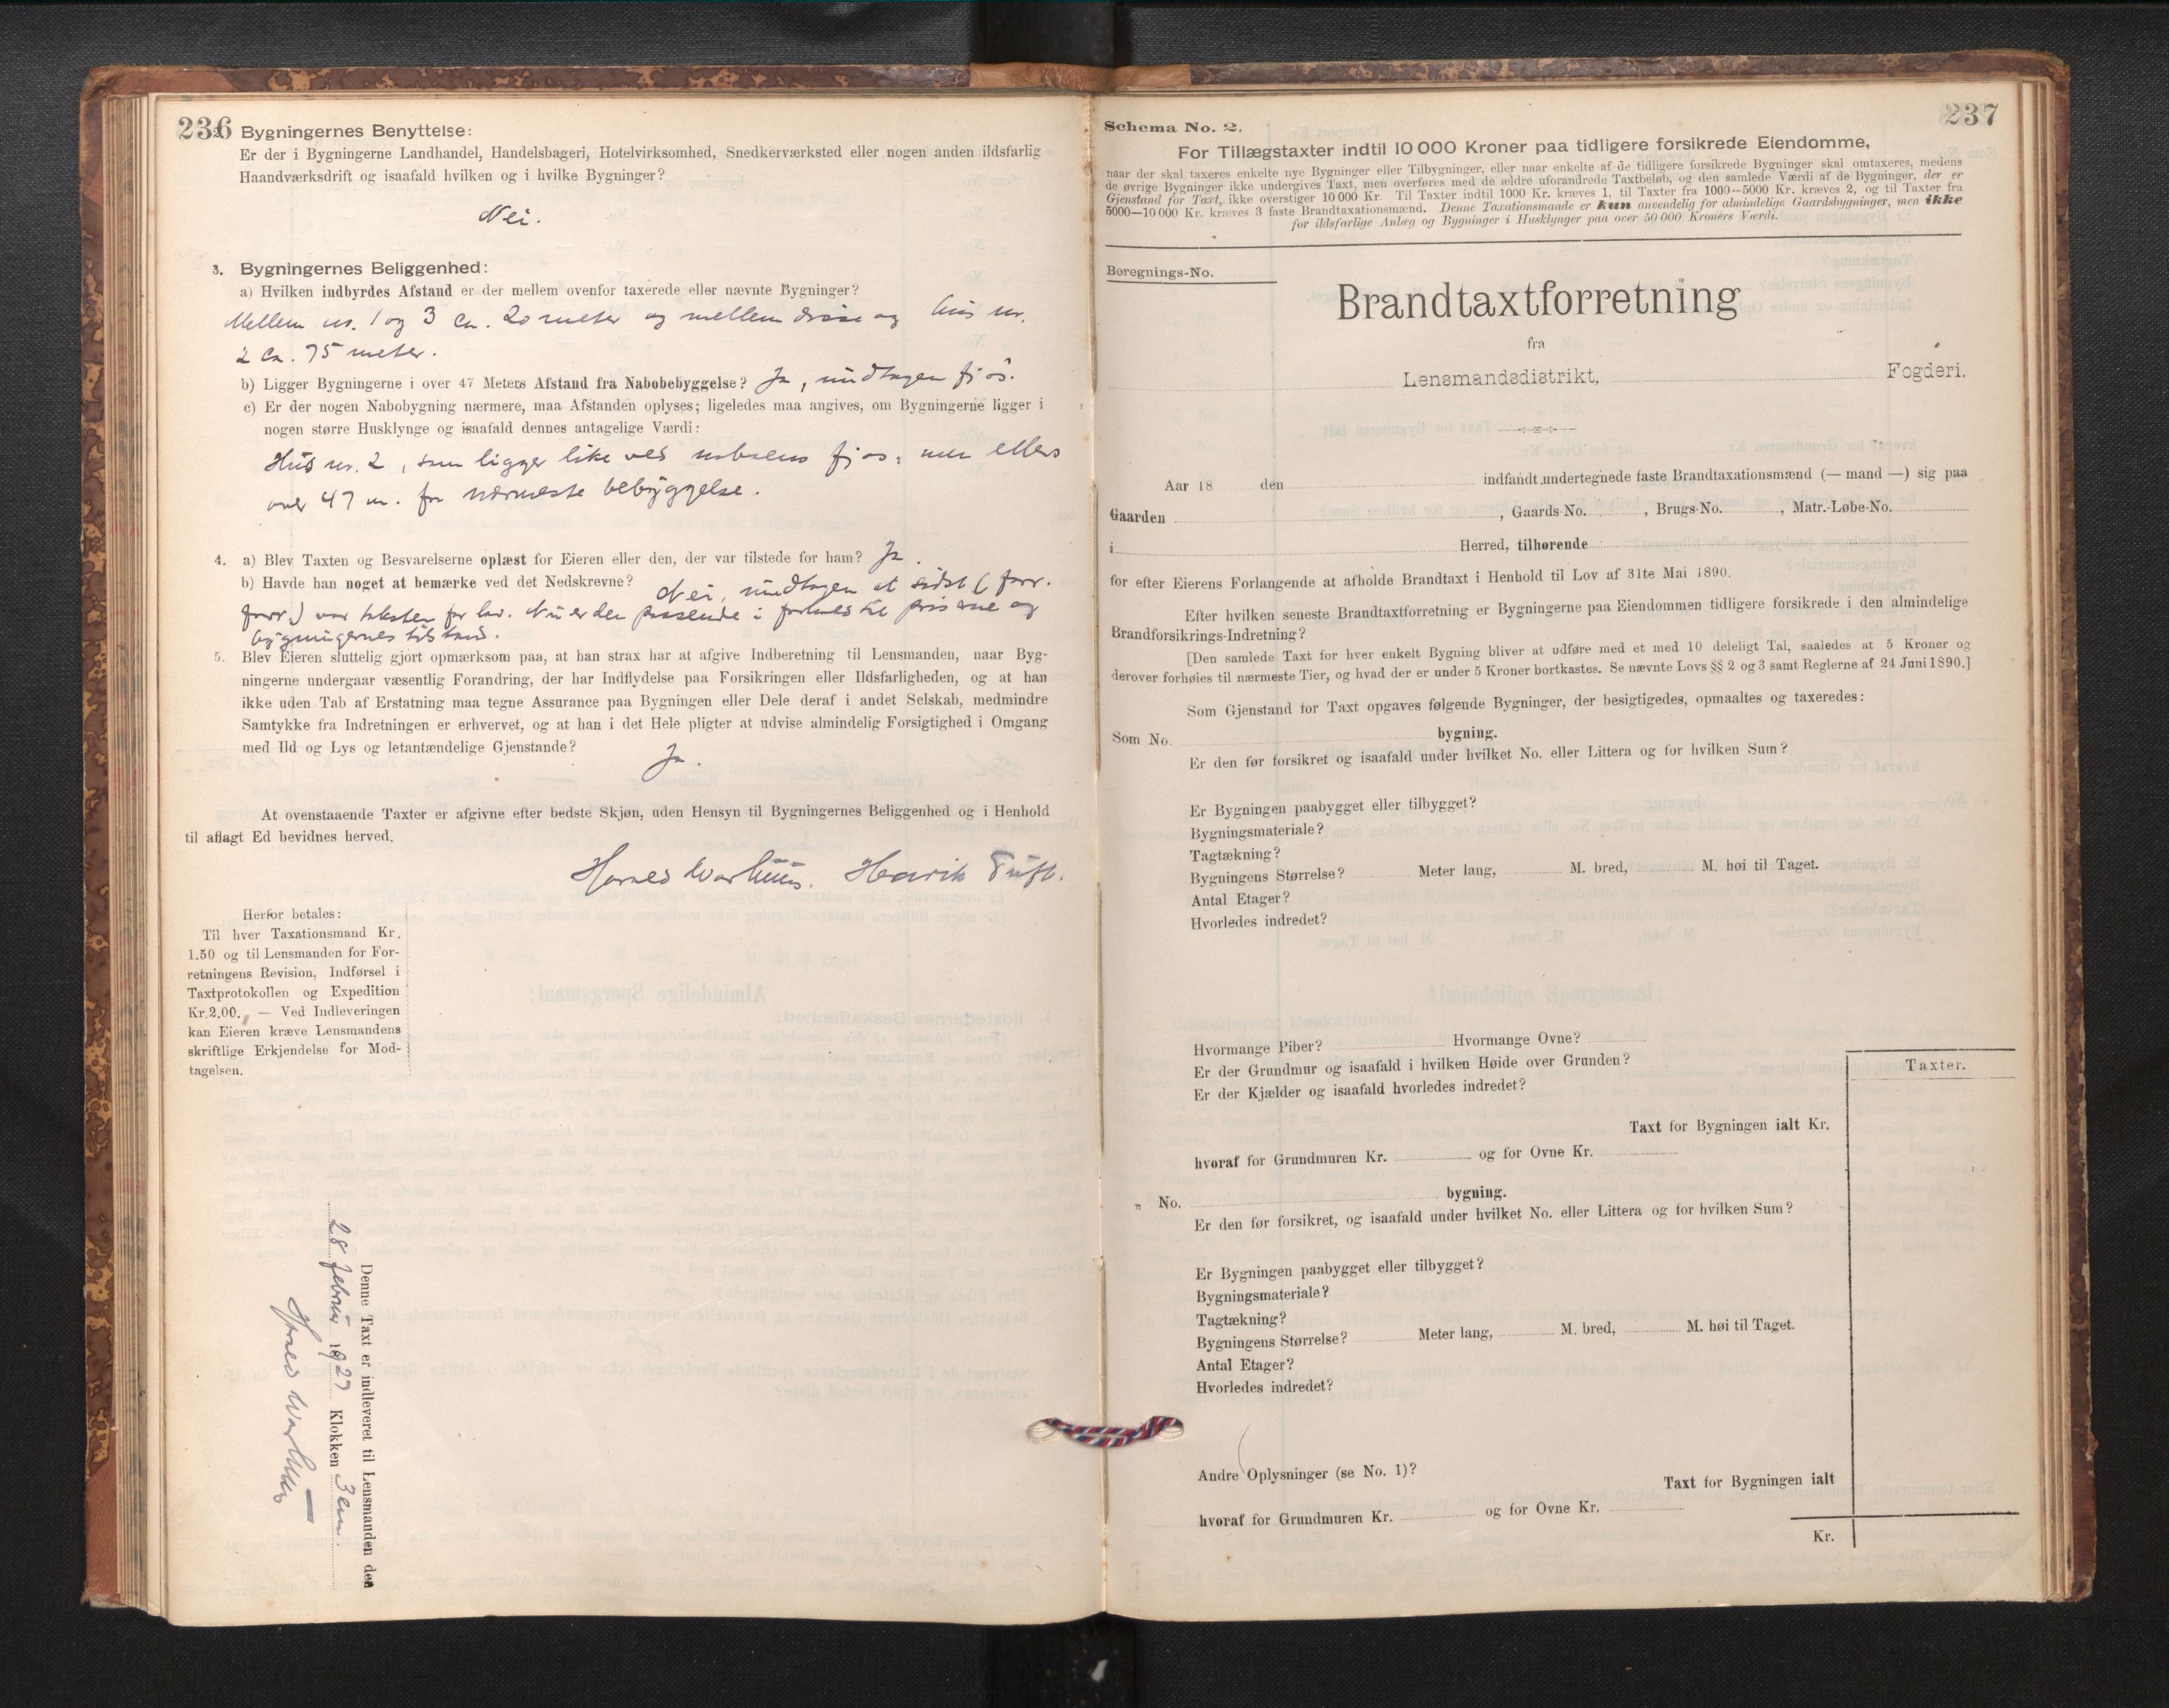 236
2. Bygningernes Benyttelse:
Er der i Bygningerne Landhandel, Handelsbageri, Hotelvirksomhed, Snedkerværksted eller nogen anden ildsfarlig
Haandværksdrift og isaafald hvilken og i hvilke Bygninger?
Nei.
3. Bygningernes Beliggenhed:
a) Hvilken indbyrdes Afstand er der mellem ovenfor taxerede eller nævnte Bygninger?
Mellem nr. 1 og 3 ca. 20 meter og mellem disse og hus nr.
2 ca. 75 meter.
b) Ligger Bygningerne i over 47 Meters Afstand fra Nabobebyggelse? Ja, undtagen fjös.
c) Er der nogen Nabobygning nærmere, maa Afstanden oplyses; ligeledes maa angives, om Bygningerne ligger i
nogen større Husklynge og isaafald dennes antagelige Værdi:
Hus nr. 2, som ligger like ved naboens fjøs, men ellers
over 47 m. fra nærmeste bebyggelse.
4. a) Blev Taxten og Besvarelserne oplæst for Eieren eller den, der var tilstede for ham? Ja.
b) Havde han noget at bemærke ved det Nedskrevne? Nei, undtagen at sidst (forr.
forr.) var taksten for lav. Nu er den passende i forhold til prisene og
bygningernes tilstand.
5. Blev Eieren sluttelig gjort opmærksom paa, at han strax har at afgive Indberetning til Lensmanden, naar Byg-
ningerne undergaar væsentlig Forandring, der har Indflydelse paa Forsikringen eller Ildsfarligheden, og at han
ikke uden Tab af Erstatning maa tegne Assurance paa Bygningen eller Dele deraf i andet Selskab, medmindre
Samtykke fra Indretningen er erhvervet, og at han i det Hele pligter at udvise almindelig Forsigtighed i Omgang
med Ild og Lys og letantændelige Gjenstande?
Ja.
At ovenstaaende Taxter er afgivne efter bedste Skjøn, uden Hensyn til Bygningernes Beliggenhed og i Henhold
til aflagt Ed bevidnes herved.
Henrik Tuft.
Herfor betales:
Til hver Taxationsmand Kr.
1.50 og til Lensmanden for For-
retningens Revision, Indførsel i
Taxtprotokollen og Expedition
Kr. 2.00. — Ved Indleveringen
kan Eieren kræve Lensmandens
skriftlige Erkjendelse for Mod-
tagelsen.
Denne Taxt er indleveret til Lensmanden den
28 februar 1927 Klokken 3 em.
237
Schema No. 2.
For Tillægstaxter indtil 10 000 Kroner paa tidligere forsikrede Eiendomme,
naar der skal taxeres enkelte nye Bygninger eller Tilbygninger, eller naar enkelte af de tidligere forsikrede Bygninger skal omtaxeres, medens
de øvrige Bygninger ikke undergives Taxt, men overføres med de ældre uforandrede Taxtbeløb, og den samlede Værdi af de Bygninger, der er
Gjenstand for Taxt, ikke overstiger 10 000 Kr. Til Taxter indtil 1000 Kr. kræves 1, til Taxter fra 1000—5000 Kr. kræves 2, og til Taxter fra
5000—10 000 Kr. kræves 3 faste Brandtaxationsmænd. Denne Taxationsmaade er kun anvendelig for almindelige Gaardsbygninger, men ikke
for ildsfarlige Anlæg og Bygninger i Husklynger paa over 50 000 Kroners Værdi.
Beregnings-No.
Brandtaxtforretning
fra
Lensmandsdistrikt, Fogderi.
Aar 18 den indfandt undertegnede faste Brandtaxationsmænd (— mand —) sig paa
Gaarden , Gaards-No. , Brugs-No. , Matr.-Løbe-No.
i Herred, tilhørende
for efter Eierens Forlangende at afholde Brandtaxt i Henhold til Lov af 31te Mai 1890.
Efter hvilken seneste Brandtaxtforretning er Bygningerne paa Eiendommen tidligere forsikrede i den almindelige
Brandforsikrings-Indretning?
[Den samlede Taxt for hver enkelt Bygning bliver at udføre med et med 10 deleligt Tal, saaledes at 5 Kroner og
derover forhøies til nærmeste Tier, og hvad der er under 5 Kroner bortkastes. Se nævnte Lovs §§ 2 og 3 samt Reglerne af 24 Juni 1890.]
Som Gjenstand for Taxt opgaves følgende Bygninger, der besigtigedes, opmaaltes og taxeredes:
Som No. bygning.
Er den før forsikret og isaafald under hvilket No. eller Littera og for hvilken Sum?
Er Bygningen paabygget eller tilbygget?
Bygningsmateriale?
Tagtækning?
Bygningens Størrelse? Meter lang, M. bred, M. høi til Taget.
Antal Etager?
Hvorledes indredet?
Hvormange Piber? Hvormange Ovne?
Er der Grundmur og isaafald i hvilken Høide over Grunden?
Er der Kjælder og isaafald hvorledes indredet?
Taxter.
Taxt for Bygningen ialt Kr.
hvoraf for Grundmuren Kr. og for Ovne Kr.
„ No. bygning.
Er den før forsikret, og isaafald under hvilket No. eller Littera og for hvilken Sum?
Er Bygningen paabygget eller tilbygget?
Bygningsmateriale?
Tagtækning?
Bygningens Størrelse? Meter lang, M. bred, M. høi til Taget.
Antal Etager?
Hvorledes indredet?
Andre Oplysninger (se No. 1)?
Taxt for Bygningen ialt
hvoraf for Grundmuren Kr. og for Ovne Kr.
Kr.